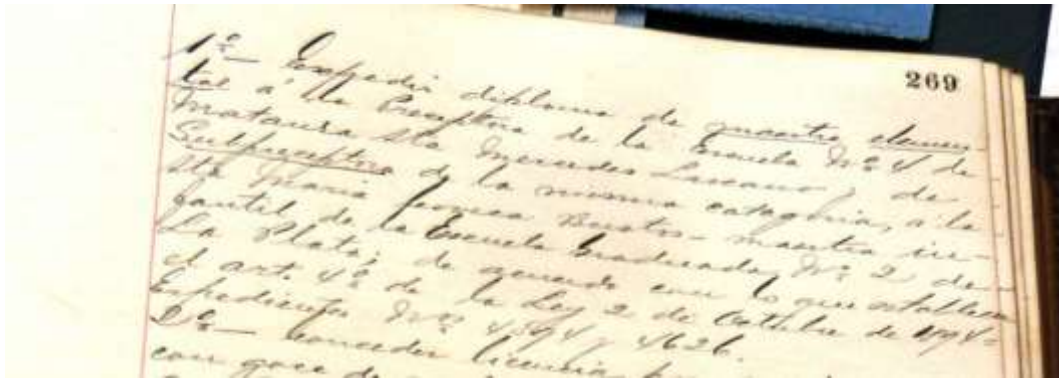 269
1º— Expedir diploma de maestra elemen-
tal á la Preceptora de la Escuela Nº 4 de
Matanza Sta Mercedes Lascano y de
Subpreceptora de la misma categoria, a la
Sta Maria Bustos- maestra in-
fantil de la Escuela Graduada Nº 2 de
La Plata; de acuerdo con lo que establece
el art. 4º de la Ley 2 de Octubre de 1894-
Expedientes Nos 4394 y 4626.
2º— Conceder licencia, por
con goce de